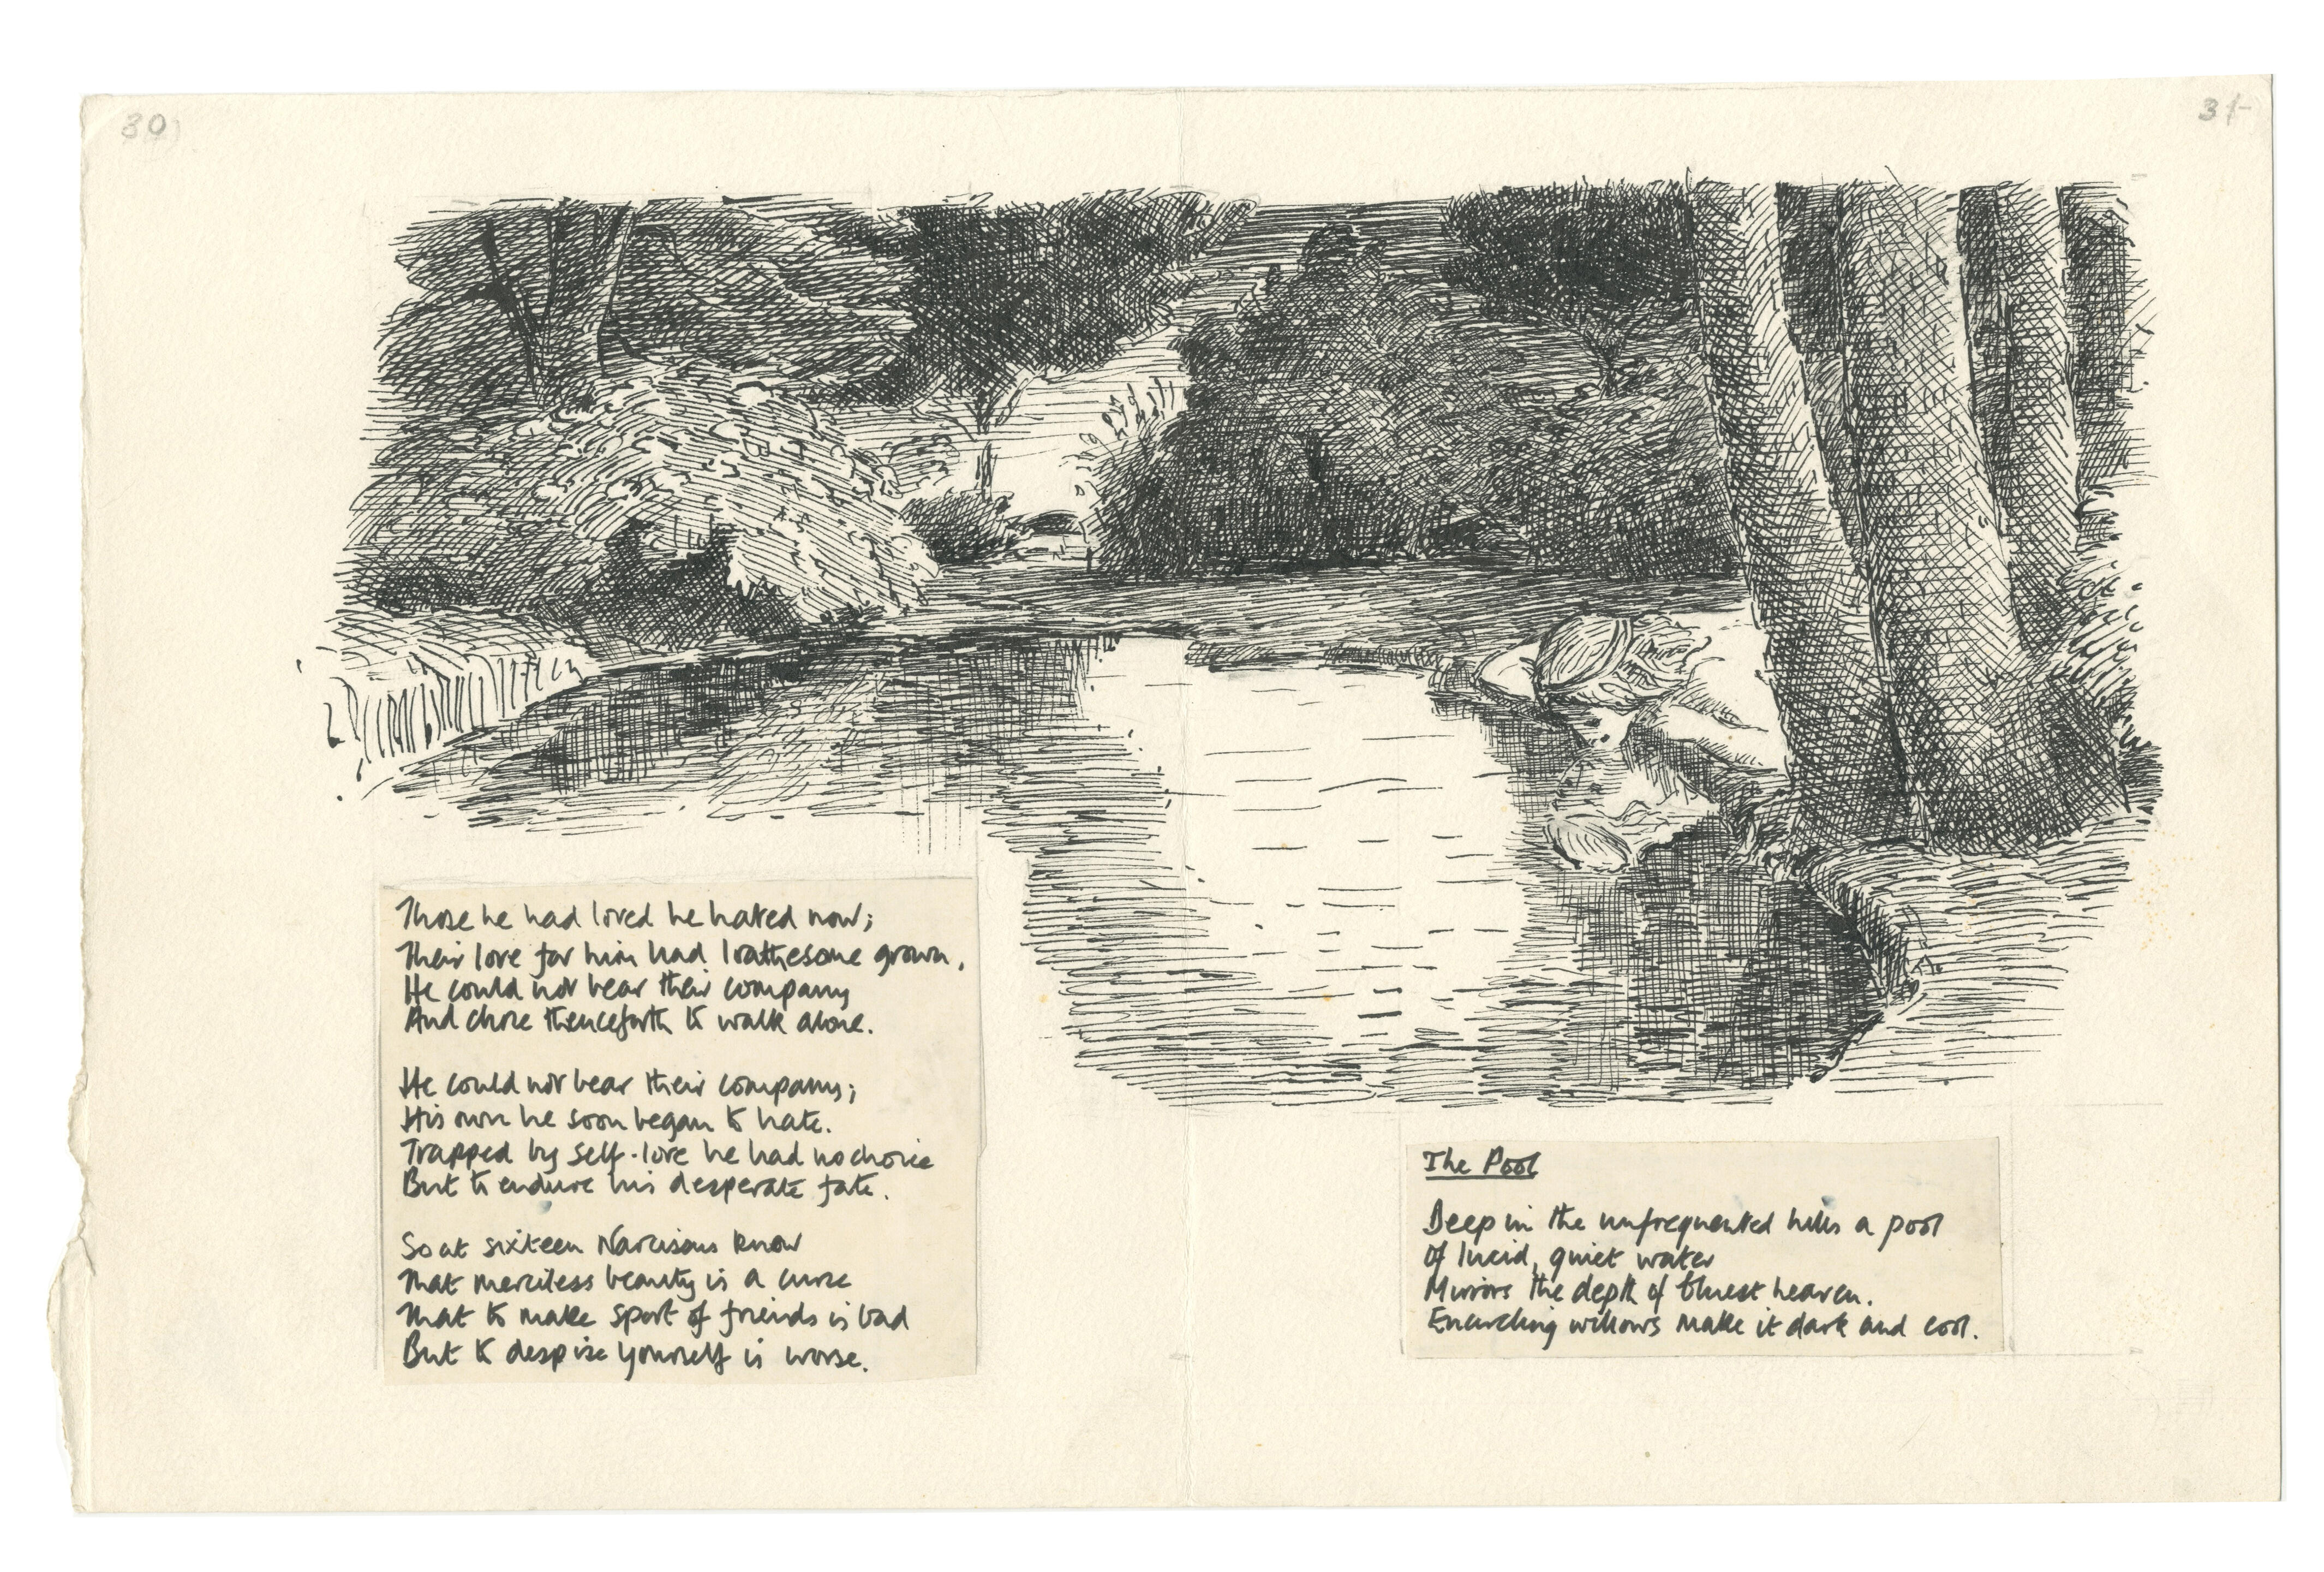 30
31
Those he had loved he hated now;
Their love for him had loathesome grown,
He could not bear their company
And chose thenceforth to walk alone.
He could not bear their company;
His own he soon began to hate.
Trapped by self-love he had no choice
But to endure his desperate fate.
So at sixteen Narcissus knew
That merciless beauty is a curse
That to make sport of friends is bad
But to despise yourself is worse.
The Pool
Deep in the unfrequented hills a pool
Of lucid, quiet water
Mirrors the depth of bluest heaven.
Encircling willows make it dark and cool.